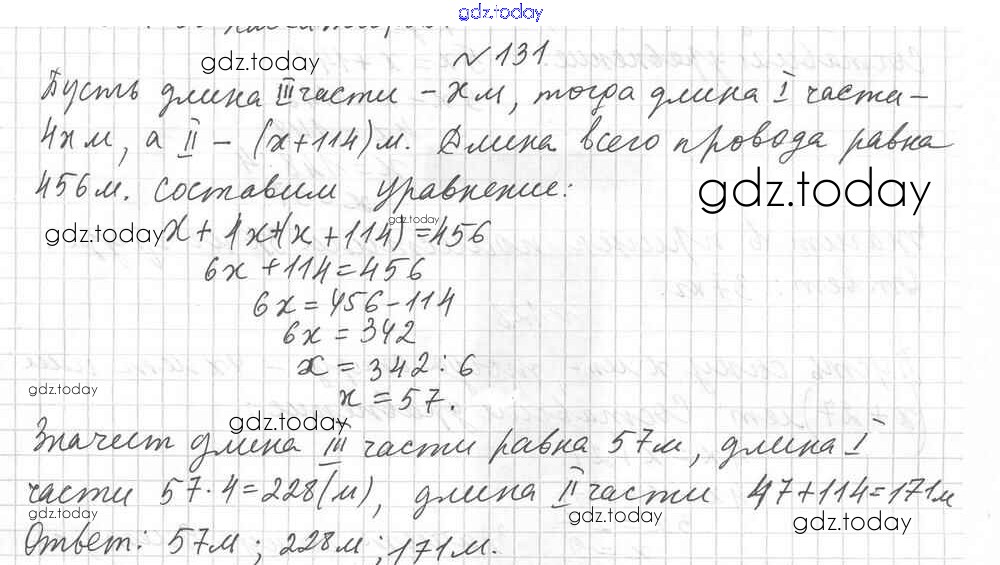 gdz.today
№131
gdz.today
Пусть длина III части - x м, тогда длина I части -
4x м, а II - (x+114) м. Длина всего провода равна
456 м. составим уравнение: gdz.today
gdz.today
gdz.today x + 4x+(x+114)=456
6x+114=456
6x=456-114
6x=342
x=342:6
gdz.today
x=57.
gdz.today
Значит длина III части равна 57 м, длина I
части 57·4=228(м), длина II части 47+114=171 м
gdz.today gdz.today gdz.today
Ответ: 57 м; 228 м; 171 м.